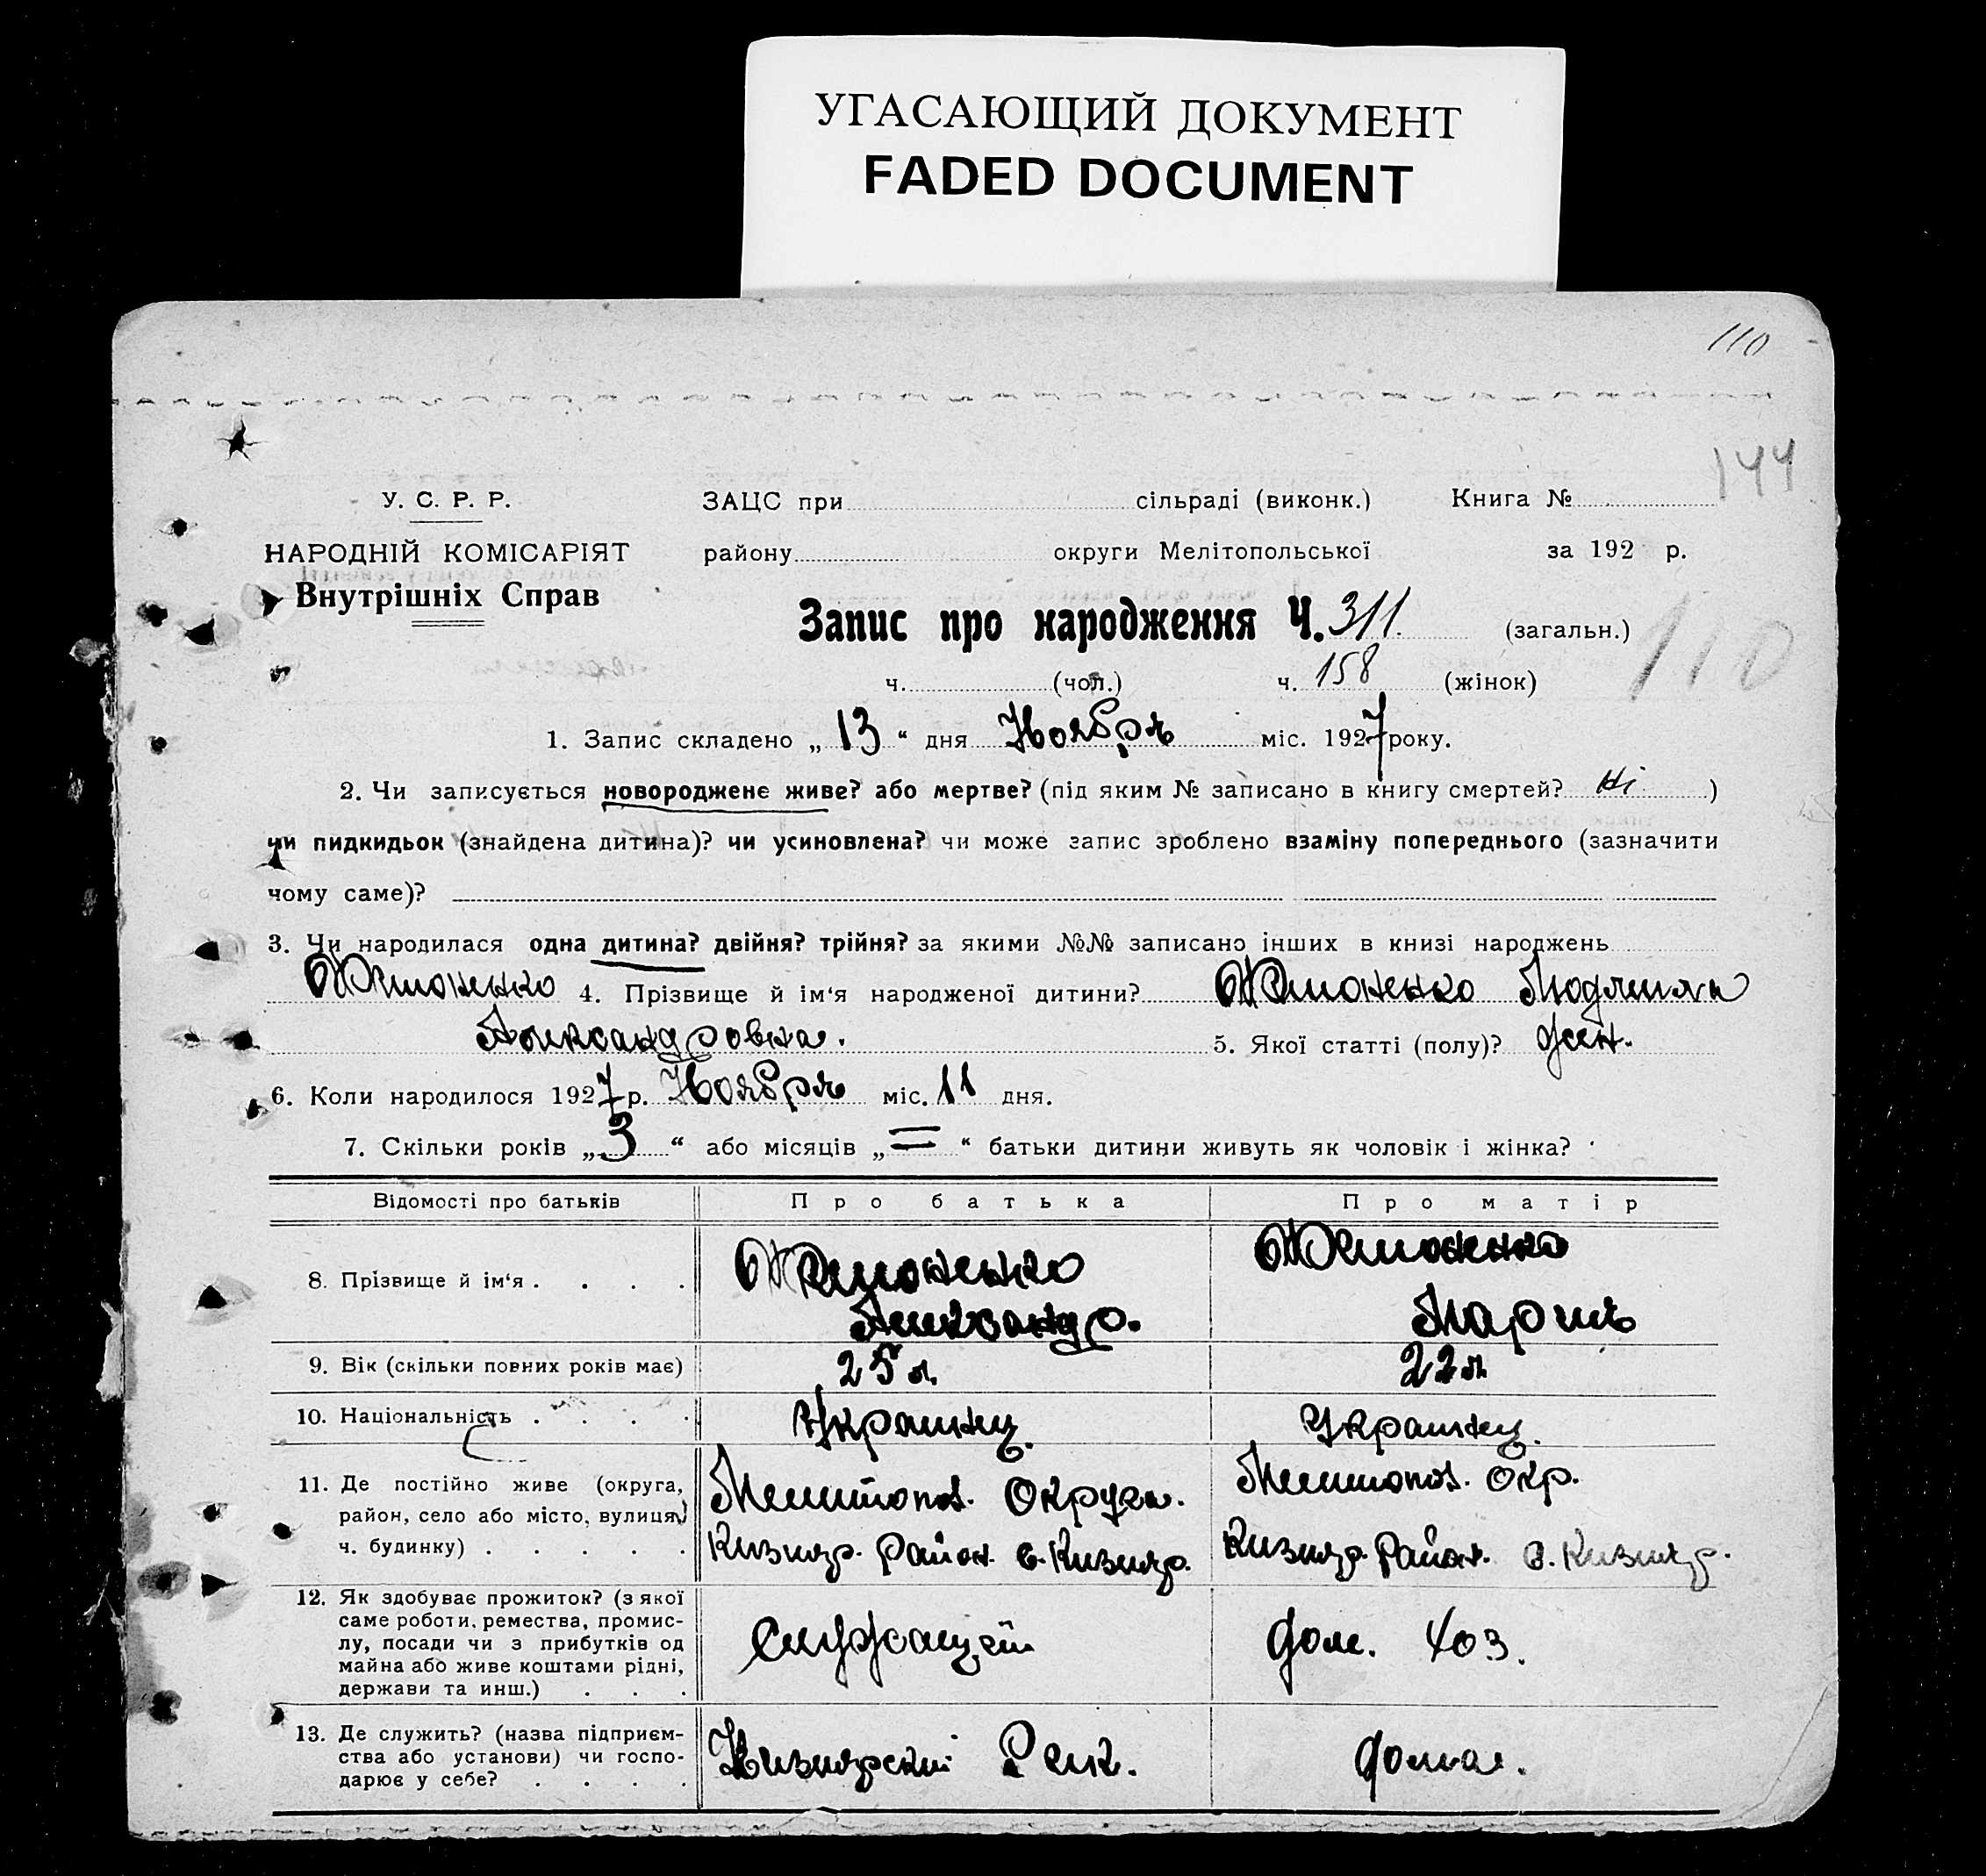 УГАСАЮЩИЙ ДОКУМЕНТ
FADED DOCUMENT
110
144
У. С. Р. Р.
НАРОДНІЙ КОМІСАРІЯТ
Внутрішніх Справ
ЗАЦС при сільраді (виконк.) Книга №
району округи Мелітопольської за 192 р.
Запис про народження Ч. 311. (загальн.)
110
ч. (чол.) ч. 158 (жінок)
1. Запис складено „ 13 “ дня Ноября міс. 1927 року.
2. Чи записується новороджене живе? або мертве? (під яким № записано в книгу смертей? ні )
чи пидкидьок (знайдена дитина)? чи усиновлена? чи може запис зроблено взаміну попереднього (зазначити
чому саме)?
3. Чи народилася одна дитина? двійня? трійня? за якими №№ записано інших в книзі народжень
4. Прізвище й ім‘я народженої дитини? Людмила
Александровна. 5. Якої статті (полу)? жен.
6. Коли народилося 1927 р. Ноября міс. 11 дня.
7. Скільки років „ 3 “ або місяців „ = “ батьки дитини живуть як чоловік і жінка?
Відомості про батьків Про батька Про матір
8. Прізвище й ім‘я . . . .
Александр. Мария
9. Вік (скільки повних років має) 25 л. 22 л
10. Національність . . . . Украинц. Украинц.
11. Де постійно живе (округа,
район, село або місто, вулиця,
ч. будинку) . . . . .
Мелитопол. Округа. Мелитопол. Окр.
Кизияр. Район. с. Кизияр. Кизияр. Район. с. Кизияр.
12. Як здобуває прожиток? (з якої
саме роботи, ремества, промис-
лу, посади чи з прибутків од
майна або живе коштами рідні,
держави та инш.) . . .
Служащий дом. хоз.
13. Де служить? (назва підприєм-
ства або установи) чи госпо-
дарює у себе? . . . .
Кизиярский Рик. дома.